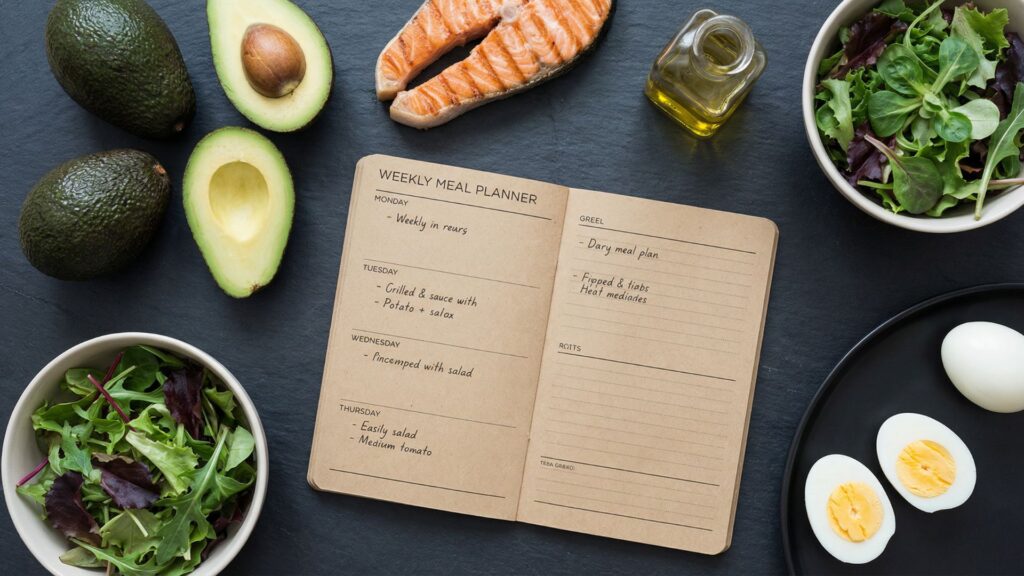 WEEKLY MEAL PLANNER
MONDAY
- Weekly in reurs
TUESDAY
- Grilled & sauce with
- Potato + salox
WEDNESDAY
- Pincemped with salad
THURSDAY
- Easily salad
- Medium tomato
GREEL
- Dary meal plan
- Fipped & tiabs
Heat medianes
ROITS